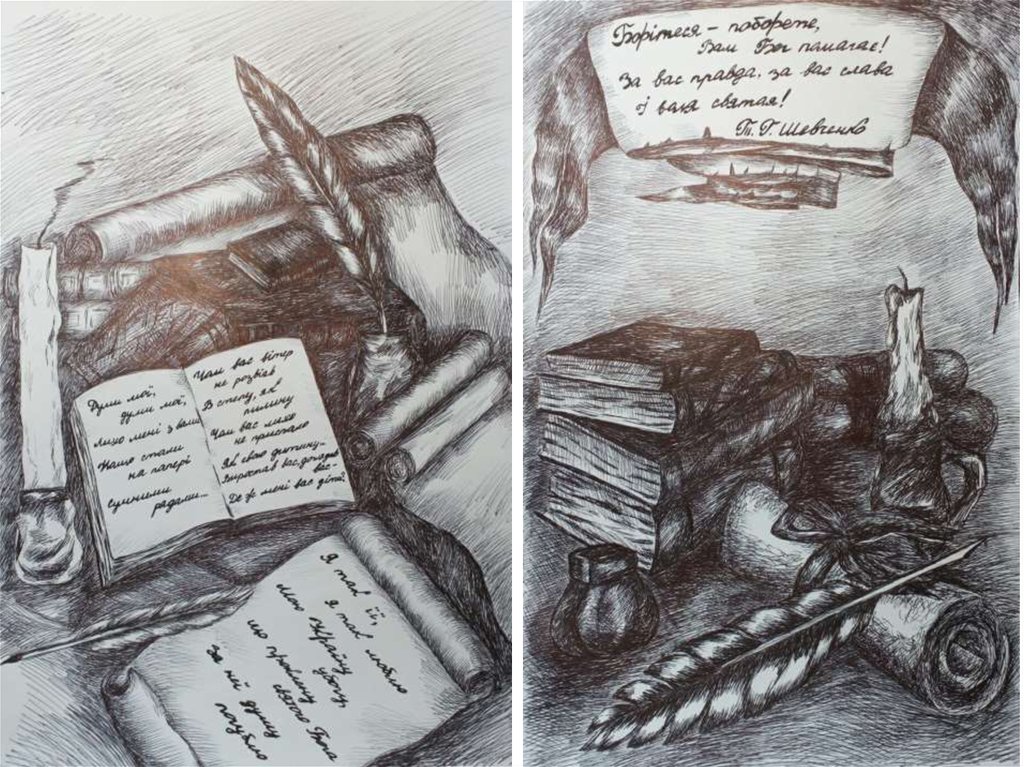 Думи мої,
думи мої,
Лихо мені з вами
Нащо стали
на папері
Сумними
рядами...
Чом вас вітер
не розвіяв
В степу, як
пилину
Чом вас лихо
не приспало
Як свою дитину...
вас
Де ж мені вас діти?
Я так її,
я так люблю
Мою Україну
убогу,
що проклину
святого Бога
За неї душу
погублю
Борітеся – поборете,
Вам Бог помагає!
За вас правда, за вас слава
І воля святая!
Т. Г. Шевченко